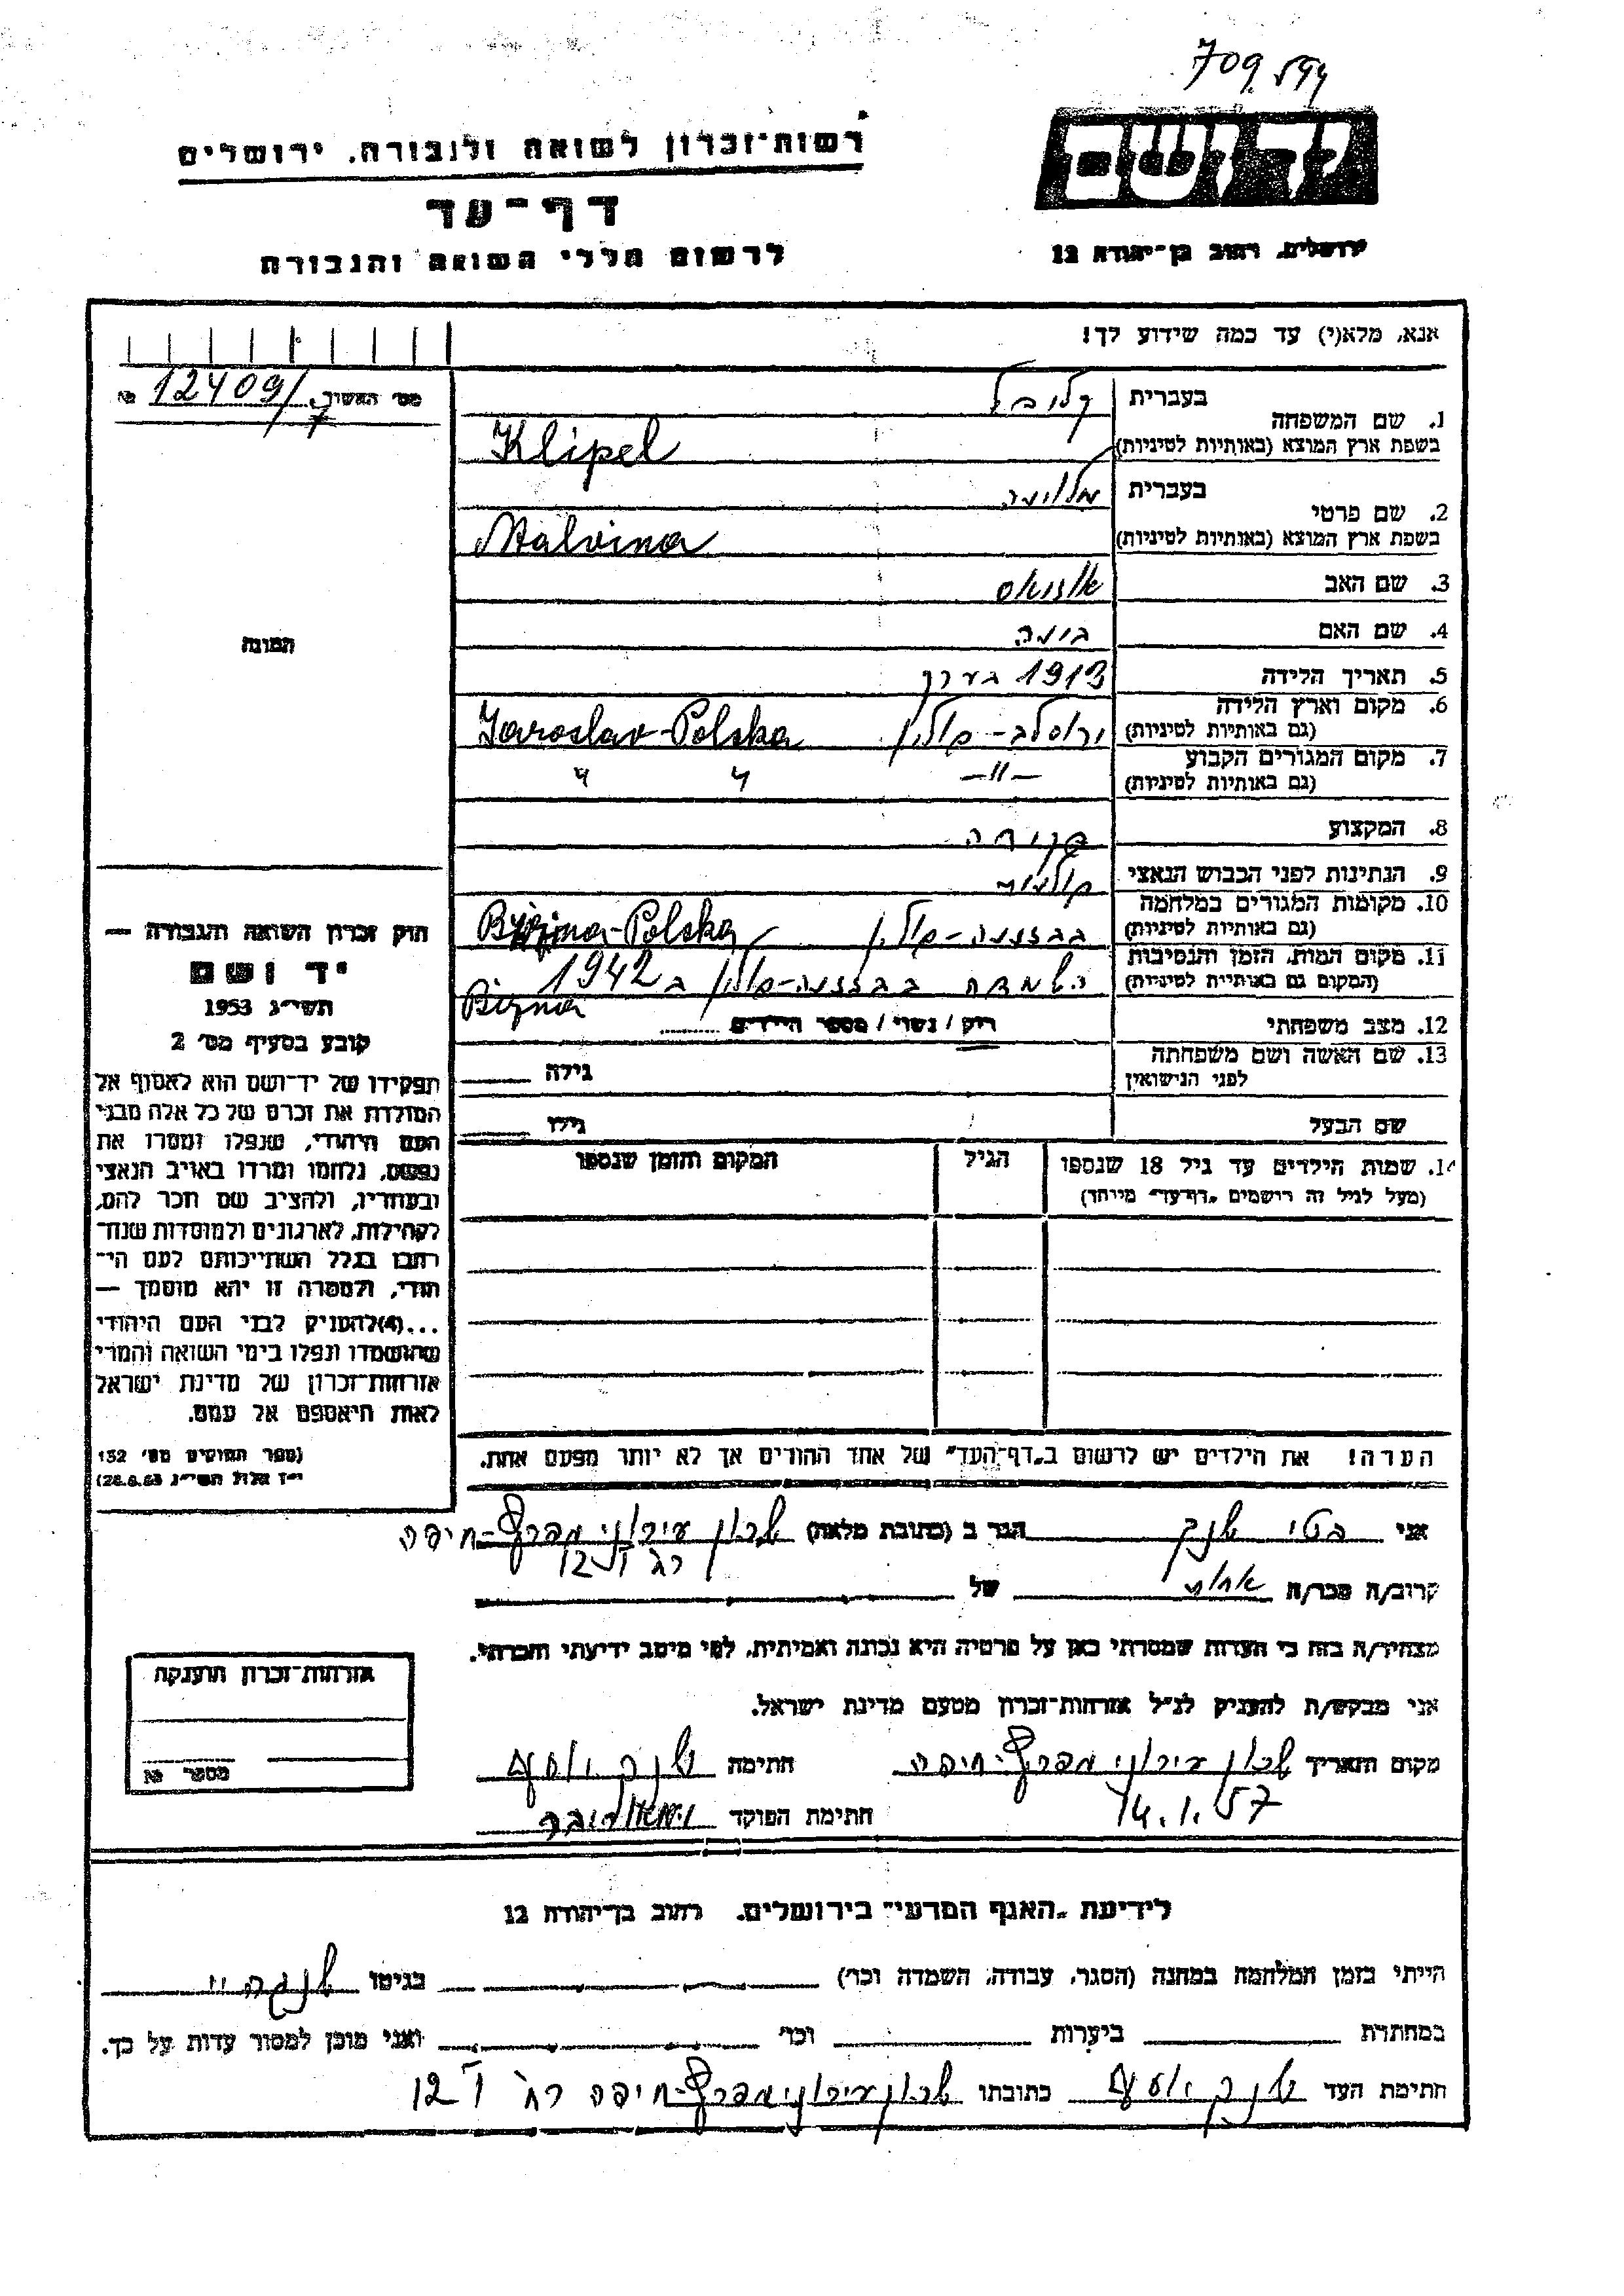 709 594
רשות־זכרון לשואה ולגבורה, ירושלים
יד ושם
דף־עד
לרשום חללי השואה והגבורה
ירושלים, רחוב בן־יהודה 12
אנא, מלא(י) עד כמה שידוע לך!
מס׳ האשיך 12409/7 №
1. שם המשפחה
בעברית
בשפת ארץ המוצא (באותיות לטיניות) Klipel
2. שם פרטי
בעברית מלוינה
בשפת ארץ המוצא (באותיות לטיניות) Malvina
3. שם האב
4. שם האם
5. תאריך הלידה 1913 בערך
6. מקום וארץ הלידה (גם באותיות לטיניות) ירוסלב - פולין Jaroslav-Polska
7. מקום המגורים הקבוע (גם באותיות לטיניות) -"- " "
8. המקצוע פקידה
9. הנתינות לפני הכבוש הנאצי פולנית
10. מקומות המגורים במלחמה (גם באותיות לטיניות) בבז׳נה - פולין Polska
11. מקום המות, הזמן והנסיבות (המקום גם באותיית לטיניית) הושמדה בבז׳נה - פולין ב 1942
12. מצב משפחתי רוק / נשוי / מספר הילדים
13. שם האשה ושם משפחתה לפני הנישואין גילה
שם הבעל גילו
14. שמות הילדים עד גיל 18 שנספו
(מעל לגיל זה רישמים „דף־עד״ מייחד)
הגיל
המקום והזמן שנספו
הערה! את הילדים יש לרשום ב„דף־העד״ של אחד ההורים אך לא יותר מפעם אחת.
התמונה
חוק זכרון השואה והגבורה —
יד ושם
תשי״ג 1953
קובע בסעיף מס׳ 2
תפקידו של יד־ושם הוא לאסוף אל
המולדת את זכרם של כל אלה מבני
העם היהודי, שנפלו ומסרו את
נפשם, נלחמו ומרדו באויב הנאצי
ובעוזריו, ולהציב שם וזכר להם,
לקהילות, לארגונים ולמוסדות שנח־
רבו בגלל השתייכותם לעם הי־
הודי, ולמטרה זו יהא מוסמך —
...(4)להעניק לבני העם היהודי
שהושמדו ונפלו בימי השואה והמרי
אזרחות־זכרון של מדינת ישראל
לאות היאספם אל עמם.
(ספר החוקים מס׳ 132
י״ז אלול תשי״ג 28.8.53)
אני בטי שנק הגר ב (כתובת מלאה) שכון עירוני מפרץ - חיפה
רח׳ 12
קרוב/ה מכר/ה אחות של
מצהיר/ה בזה כי העדות שמסרתי כאן על פרטיה היא נכונה ואמיתית, לפי מיטב ידיעתי והכרתי.
אני מבקש/ת להעניק לנ״ל אזרחות־זכרון מטעם מדינת ישראל.
מקום ותאריך שכון עירוני מפרץ - חיפה חתימה שנק
14.1.57 חתימת הפוקד
אזרחות־זכרון הוענקה
מספר №
לידיעת „האגף המדעי״ בירושלים. רחוב בן־יהודה 12
הייתי בזמן המלחמה במחנה (הסגר, עבודה, השמדה וכו׳) בגיטו
במחתרת ביערות וכו׳ ואני מוכן למסור עדות על כך.
חתימת העד שנק כתובתו שכון עירוני מפרץ - חיפה רח׳ 12